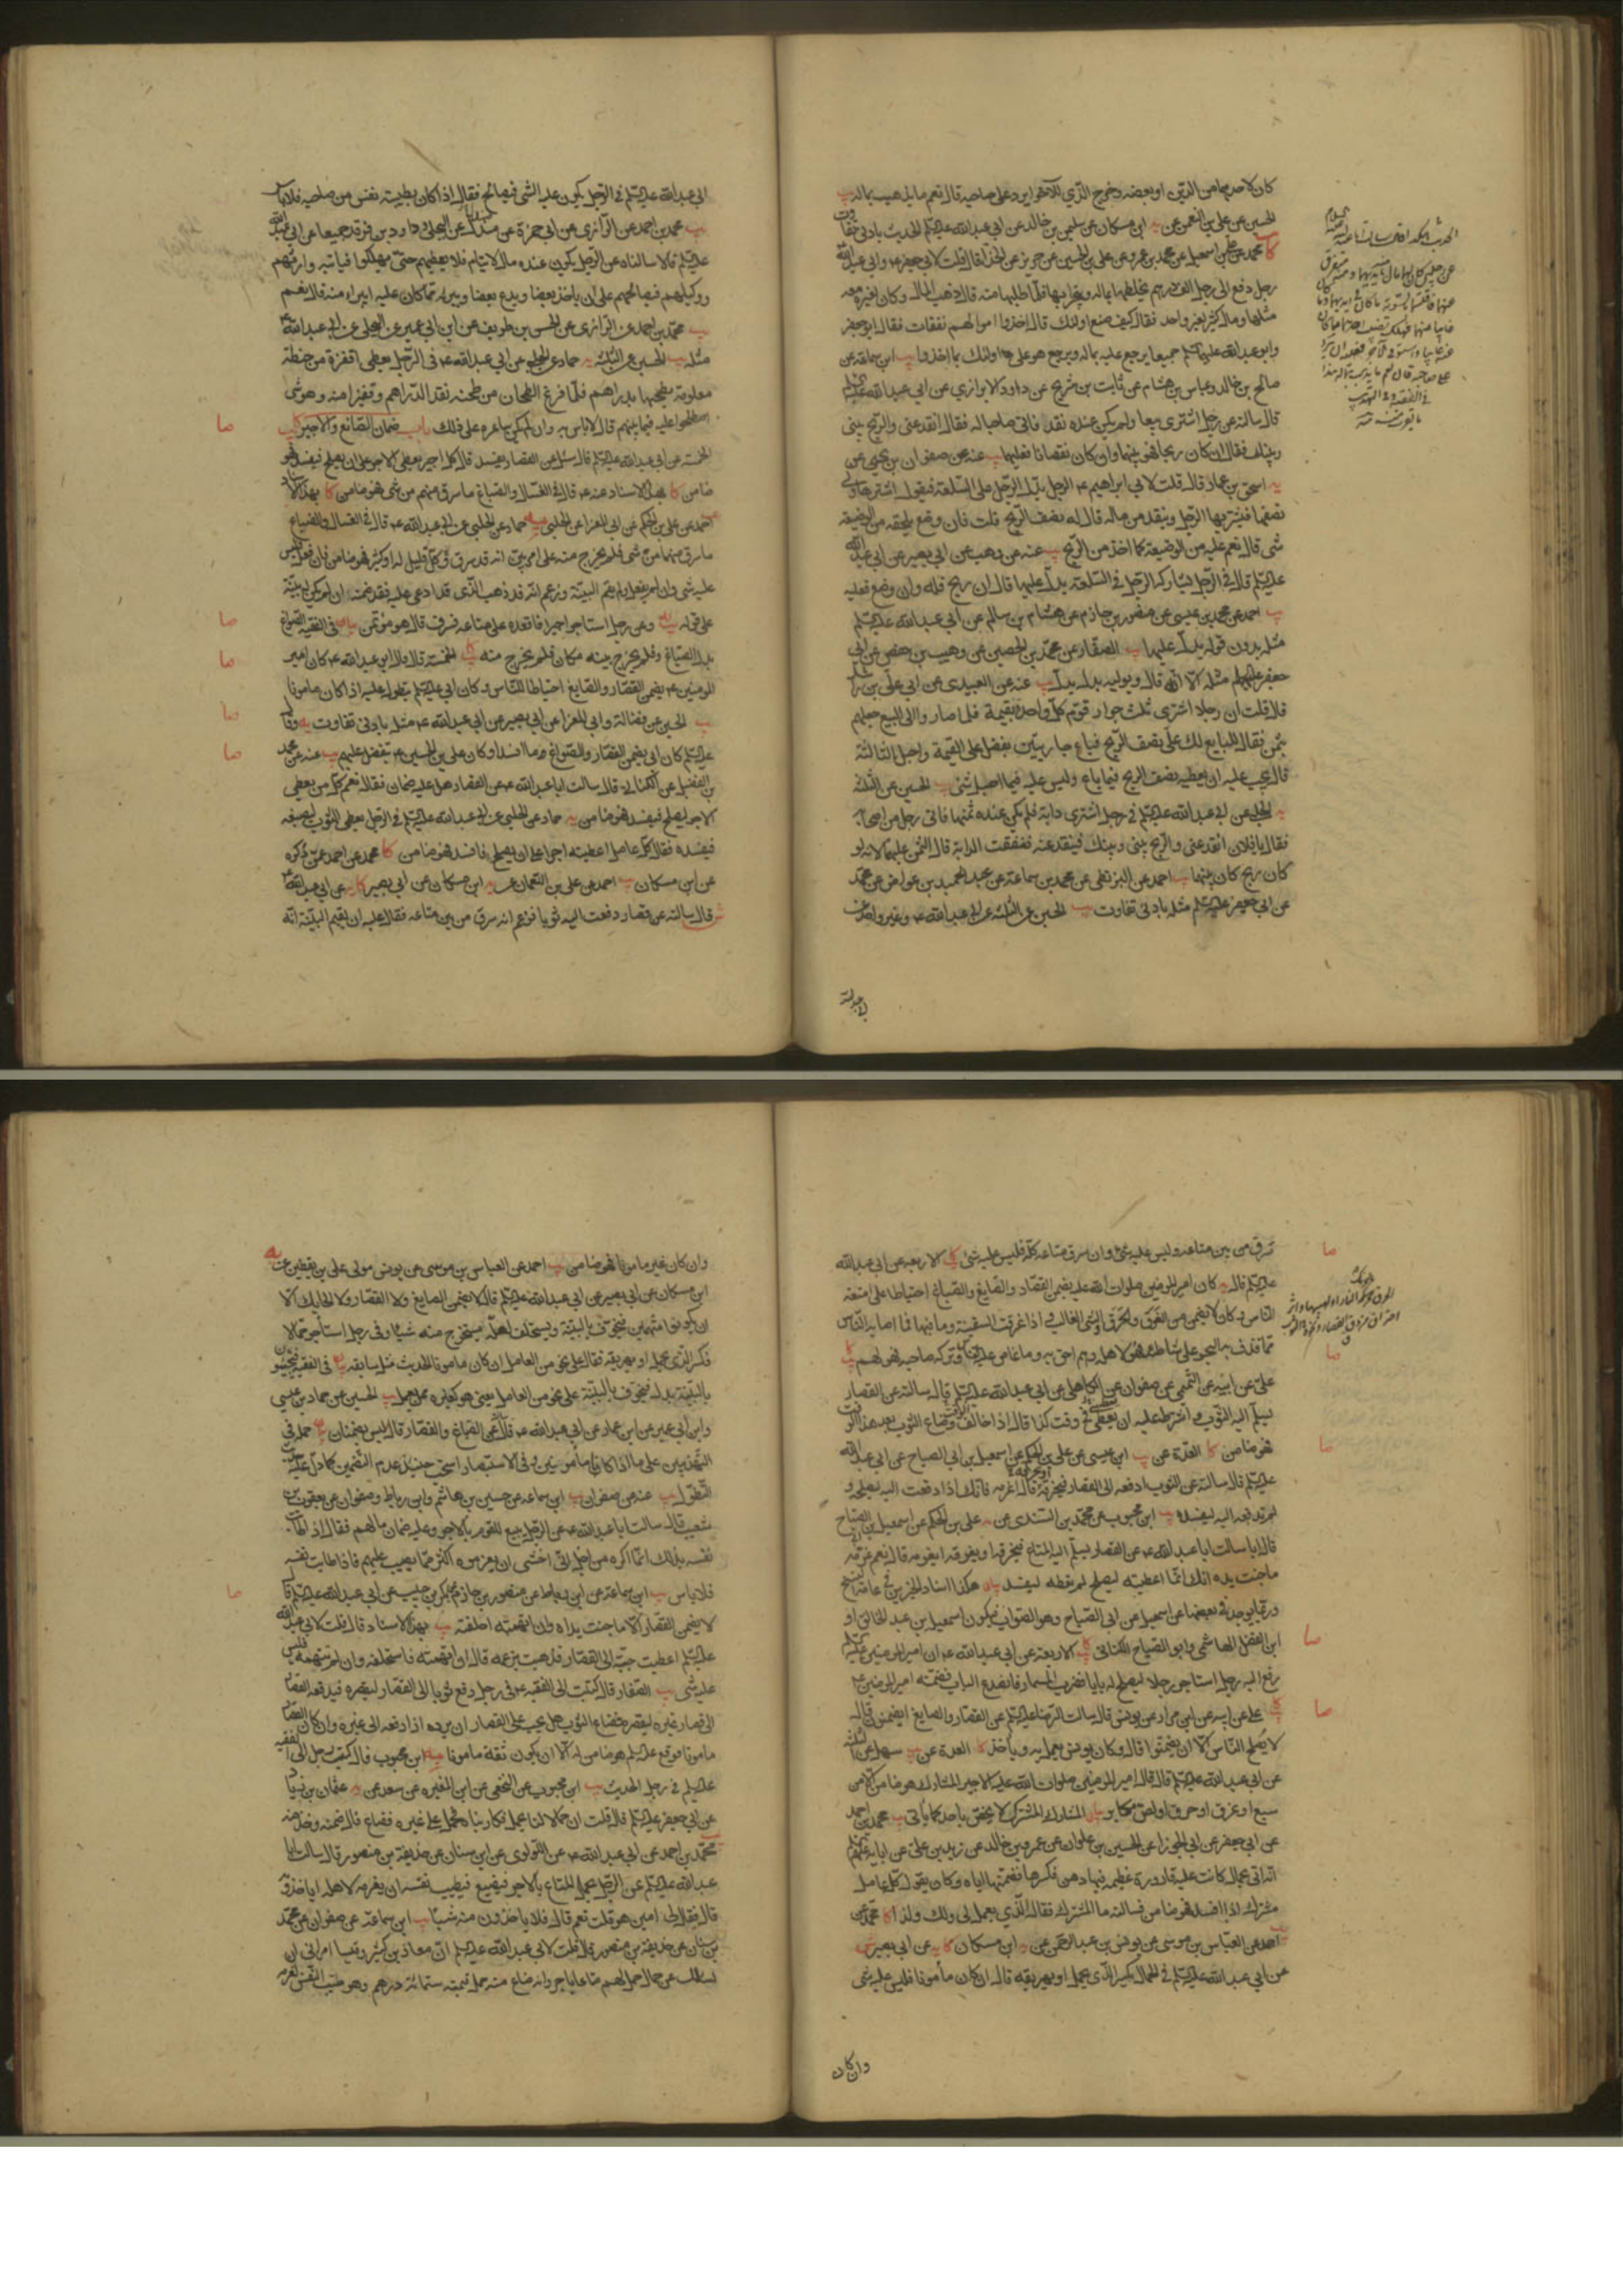 كان لاحدهما من الدين او بعضه وخرج الذي للآخر ايرد على صاحبه قال نعم ما يذهب بماله يب
الحسين عن علي بن النعمن عن يه ابن مسكان عن سليمن بن خالد عن ابي عبدالله عليه السلم الحديث بادنى تفاوت
كا محمد عن اسمعيل عن محمد بن عمرو عن علي بن الحسين عن حريز عن قال قلت لابي جعفر وابي عبدالله
رجل دفع الى رجل الف درهم يخلطها بماله ويتجر بها فلما طلبها منه قال ذهب المال وكان لغيره معه
مثلها ومال كثير لغير واحد فقال كيف صنع اولئك قال اخذوا اموالهم نفقات فقال ابو جعفر
وابو عبدالله عليهما السلم جميعا يرجع عليه بماله ويرجع هو على اولئك بما اخذوا يب ابن سماعة عن
صالح بن خالد وعباس بن هشام عن ثابت بن شريح عن داود الابزاري عن ابي عبدالله عليه السلم
قال سالته عن رجل اشترى بيعا ولم يكن عنده نقد فاتى صاحبا له فقال انقد عني والربح بيني
وبينك فقال ان كان ربحا فهو بينهما وان كان نقصانا فعليهما يب عنه عن صفوان بن يحيى عن
يه اسحق بن عمار قال قلت لابي ابراهيم ع الرجل يدل الرجل على السلعة فيقول اشترها ولي
نصفها فيشتريها الرجل وينقد من ماله قال له نصف الربح قلت فان وضع يلحقه من الوضيعة
شئ قال نعم عليه من الوضيعة كما اخذ من الربح يب عنه عن وهيب عن ابي بصير عن ابي عبدالله
عليه السلم قال في الرجل يشاركه الرجل في السلعة يدل عليها قال ان ربح فله وان وضع فعليه
يب احمد عن محمد بن عيسى عن منصور بن حازم عن هشام بن سالم عن ابي عبدالله عليه السلم
مثله بدون قوله يدل عليها يب الصفار عن محمد بن الحصين عن وهيب بن حفص عن ابي
جعفر عليه السلم مثله الا انه قال ويوليه بدل يدل يب عنه عن العبيدي عن ابي علي بن راشد
قال قلت ان رجلا اشترى ثلث جوار قوم كل واحدة بقيمة فلما صاروا الى البيع جعلهم
بثمن فقال للبايع لك علي نصف الربح فباع جاريتين بفضل على القيمة واحبل الثالثة
قال يجب عليه ان يعطيه نصف الربح فيما باع وليس عليه فيما احبل شئ يب الحسين عن الثلثة
يه الحلبي عن ابي عبدالله عليه السلم في رجل اشترى دابة فلم يكن عنده ثمنها فاتى رجل من اصحابه
فقال يا فلان انقد عني والربح بيني وبينك فينقد عنه فنفقت الدابة قال الثمن عليهما لانه لو
كان ربح كان بينهما يب احمد عن البزنطي عن محمد بن سماعة عن عبد الحميد بن عواض عن محمد
عن ابي جعفر عليه السلم مثله بادنى تفاوت يب الحسين عن الثلثة عن ابي عبدالله ع وغير واحد عن
ابي عبدالله
ابي عبدالله عليه السلم في الرجل يكون عليه الشئ فيصالح فقال اذا كان بطيبة نفس من صاحبه فلا باس
يب محمد بن احمد عن الرازي عن ابن ابي حمزة عن عن البجلي وداود بن فرقد جميعا عن ابي عبدالله
عليه السلم قالا سالناه عن الرجل يكون عنده مال لايتام فلا يعطيهم حتى يهلكوا فياتيه وارثهم
ووكيلهم فيصالحهم على ان ياخذ بعضا ويدع بعضا ويبريه مما كان عليه ايبراء منه قال نعم
يب محمد بن احمد عن الرازي عن الحسن بن ظريف عن ابن ابي عمير عن البجلي عن ابي عبدالله ع
مثله يب الحسين عن الثلثة يه حماد عن الحلبي عن ابي عبدالله ع في الرجل يعطى اقفزة من حنطة
معلومة يطحنها بدراهم فلما فرغ الطحان من طحنه نقد الدراهم وقفيزا منه وهو شئ
اصطلحوا عليه فيما بينهم قال لا باس به وان لم يكن ساعره على ذلك باب ضمان الصانع والاجير كا يب
الخمسة عن ابي عبدالله عليه السلم قال سئل عن القصار يفسد قال كل اجير يعطى الاجر على ان يصلح فيفسد فهو
ضامن كا بهذا الاسناد عنه ع قال في الغسال والصباغ ما سرق منهم من شئ فهو ضامن كا بهذا الاسناد
احمد عن علي بن الحكم عن ابي المغرا عن الحلبي يه حماد عن الحلبي عن ابي عبدالله ع قال في الغسال والصباغ
ما سرق منهما من شئ فلم يخرج منه على امر بين انه قد سرق وكل قليل له او كثير فهو ضامن فان فعل فليس
عليه شئ وان لم يفعل ولم يقم البينة وزعم انه قد ذهب الذي قد ادعى عليه فقد ضمنه ان لم يكن له بينة
على قوله وعن رجل استاجر اجيرا فاقعده على متاعه فسرق قال هو مؤتمن بيان في الفقيه الصواغ
بدل الصباغ وفلم يخرج بينه مكان فلم يخرج منه كا يب الخمسة قال قال ابو عبدالله ع كان امير
المومنين ع يضمن القصار والصايغ احتياطا للناس وكان ابي عليه السلم يتطول عليه اذا كان مامونا
يب الحسين عن فضالة وابي المغرا عن ابي بصير عن ابي عبدالله ع مثله بادنى تفاوت يه وقال
عليه السلم كان ابي يضمن القصار والصواغ وما افسدا وكان علي بن الحسين ع يتفضل عليهم يب عنه عن محمد
بن الفضيل عن الكناني قال سالت ابا عبدالله ع عن القصار هل عليه ضمان فقال نعم كل من يعطى
الاجر ليصلح فيفسد فهو ضامن يه حماد عن الحلبي عن ابي عبدالله عليه السلم في الرجل يعطي الثوب ليصبغه
فيفسده فقال كل عامل اعطيته اجرا على ان يصلح فافسد فهو ضامن كا محمد عن احمد عمن ذكره
عن ابن مسكان يب احمد عن علي بن النعمان عن يه ابن مسكان عن ابي بصير كا يه عن ابي عبدالله ع
ش قال سالته عن قصار دفعت اليه ثوبا فزعم انه سرق من بين متاعه فقال عليه ان يقيم البينة انه
سرق من بين متاعه وليس عليه شئ وان سرق متاعه كله فليس عليه شئ كا الاربعة عن ابي عبدالله
عليه السلم قال يه كان امير المومنين صلوات الله عليه يضمن القصار والصايغ والصباغ احتياطا على امتعة
الناس وكان لا يضمن من الغرق والحرق والشئ الغالب اذا غرقت السفينة وما فيها فما اصابه الناس
مما قذف به البحر على ساحله فهو لاهله وهم احق به وما غاص عليه الناس وتركه صاحبه فهو لهم كا يب
علي عن ابيه عن صفوان عن الكاهلي عن ابي عبدالله عليه السلم قال سالته عن القصار
يسلم اليه الثوب واشترط عليه ان يعطي في وقت كذا قال اذا خالف وضاع الثوب بعد هذا الوقت
فهو ضامن كا العدة عن يب ابن عيسى عن علي بن الحكم عن اسمعيل بن ابي الصباح عن ابي عبدالله
عليه السلم قال سالته عن الثوب ادفعه الى القصار فيخرقه قال اغرمه فانك اذا دفعت اليه ليصلحه و
لم تدفعه اليه ليفسده يب ابن محبوب عن محمد بن السندي عن علي بن الحكم عن اسمعيل بن الصباح
قال سالت ابا عبدالله ع عن القصار يسلم اليه المتاع فيخرقه او يغرقه ايغرمه قال نعم غرمه
ما جنت يده انك انما اعطيته ليصلح لم تعطه ليفسد بيان هكذا اسناد الخبرين في عامة النسخ
وربما يوجد في بعضها عن اسمعيل عن ابي الصباح وهو الصواب فيكون اسمعيل بن عبد الخالق او
ابن الفضل الهاشمي وابو الصباح الكناني كا يب الاربعة عن ابي عبدالله ع ان امير المومنين عليه السلم
رفع اليه رجل استاجر رجلا ليصلح له بابا فضرب المسمار فانصدع الباب فضمنه امير المومنين ع
كا يب علي عن ابيه عن ابن مرار عن يونس قال سالت الرضا عليه السلم عن القصار والصايغ ايضمنون قال
لا يصلح الناس الا ان يضمنوا قال وكان يونس يعمل به وياخذ كا العدة عن يب سهل عن
عن ابي عبدالله عليه السلم قال قال امير المومنين صلوات الله عليه الاجير المشارك هو ضامن الا من
سبع او غرق او حرق او لص مكابر بيان المشارك المشترك لا يختص باحد كما ياتي يب محمد بن احمد
عن ابي جعفر عن ابي الجوزا عن الحسين بن علوان عن عمرو بن خالد عن زيد بن علي عن ابايه عليهم السلم
انه اتي بحمال كانت عليه قارورة عظيمة فيها دهن فكسرها فضمنها اياه وكان يقول كل عامل
مشترك اذا افسد فهو ضامن فسالته ما المشترك فقال الذي يعمل لي ولك ولذا كا محمد عن
احمد عن العباس بن موسى عن يونس بن عبدالرحمن عن يه ابن مسكان كا يه عن ابي بصير ش
عن ابي عبدالله عليه السلم في الجمال يكسر الذي يحمل او يهريقه قال ان كان مأمونا فليس عليه شئ
وان كان
وان كان غير مامون فهو ضامن يب احمد عن العباس بن موسى عن يونس مولى علي بن يقطين عن
ابن مسكان عن ابي بصير عن ابي عبدالله عليه السلم قال لا يضمن الصايغ ولا القصار ولا الحايك الا
ان يكونوا متهمين فيخوف بالبينة ويستحلف لعله يستخرج منه شيئا وفي رجل استأجر جمالا
فكسر الذي يحمل او يهريقه فقال على نحو من العامل ان كان مامونا الحديث مثل سابقه بيان في الفقيه فيجيئون
بالبينة بدل فيخوف بالبينة على نحو من العامل يعني هو كغيره ممن يعمل يب الحسين عن حماد بن عيسى
وابن ابي عمير عن ابن عمار عن ابي عبدالله ع قال عن الصباغ والقصار قال ليس يضمنان بيان حمله في
التهذيبين على ما اذا كانا مأمونين وفي الاستبصار استحب حينئذ عدم التضمين كما دل عليه حديث
التطول يب عنه عن صفوان يب ابن سماعة عن حسين بن هاشم وابن رباط وصفوان عن يعقوب بن
شعيب قال سالت ابا عبدالله ع عن الرجل يبيع للقوم بالاجر وعليه ضمان مالهم فقال اذا طابت
نفسه بذلك انما اكره من اجل اني اخشى ان يغرموه اكثر مما يصيب عليهم فاذا طابت نفسه
فلا باس يب ابن سماعة عن ابن رباط عن منصور بن حازم عن بكر بن حبيب عن ابي عبدالله عليه السلم قال
لا يضمن القصار الا ما جنت يداه وان اتهمته احلفته يب بهذا الاسناد قال قلت لابي عبدالله
عليه السلم اعطيت جبة الى القصار فذهبت بزعمه قال ان اتهمته فاستحلفه وان لم تتهمه فليس
عليه شئ يب الصفار قال كتبت الى الفقيه ع في رجل دفع ثوبا الى القصار ليقصره فيدفعه القصار
الى قصار غيره ليقصره فضاع الثوب هل يجب على القصار ان يرده اذا دفعه الى غيره وان كان القصار
مامونا فوقع عليه السلم هو ضامن له الا ان يكون ثقة مامونا يه ابن محبوب قال كتب رجل الى الفقيه
عليه السلم في رجل الحديث يب ابن محبوب عن النخعي عن ابن المغيرة عن سعد عن يه عثمان بن زياد
عن ابي جعفر عليه السلم قال قلت ان حمالا لنا يحمل فكاريناه فحمل على غيره فضاع قال ضمنه وخذ منه
يب محمد بن احمد عن ابي عبدالله ع عن اللولوي عن ابن سنان عن حذيفة بن منصور قال سالت ابا
عبدالله عليه السلم عن الرجل يحمل المتاع بالاجر فيضيع فتطيب نفسه ان يغرمه لاهله ايأخذونه
قال فقال لي امين هو قلت نعم قال فلا ياخذون منه شيئا يب ابن سماعة عن صفوان عن محمد
بن سنان عن حذيفة بن منصور قال قلت لابي عبدالله عليه السلم ان معاذ بن كثير وقيسا امراني ان
اسالك عن حمال حمل لهم متاعا باجر وانه ضاع منه حمل قيمته ستمائة درهم وهو طيب النفس لغرمه